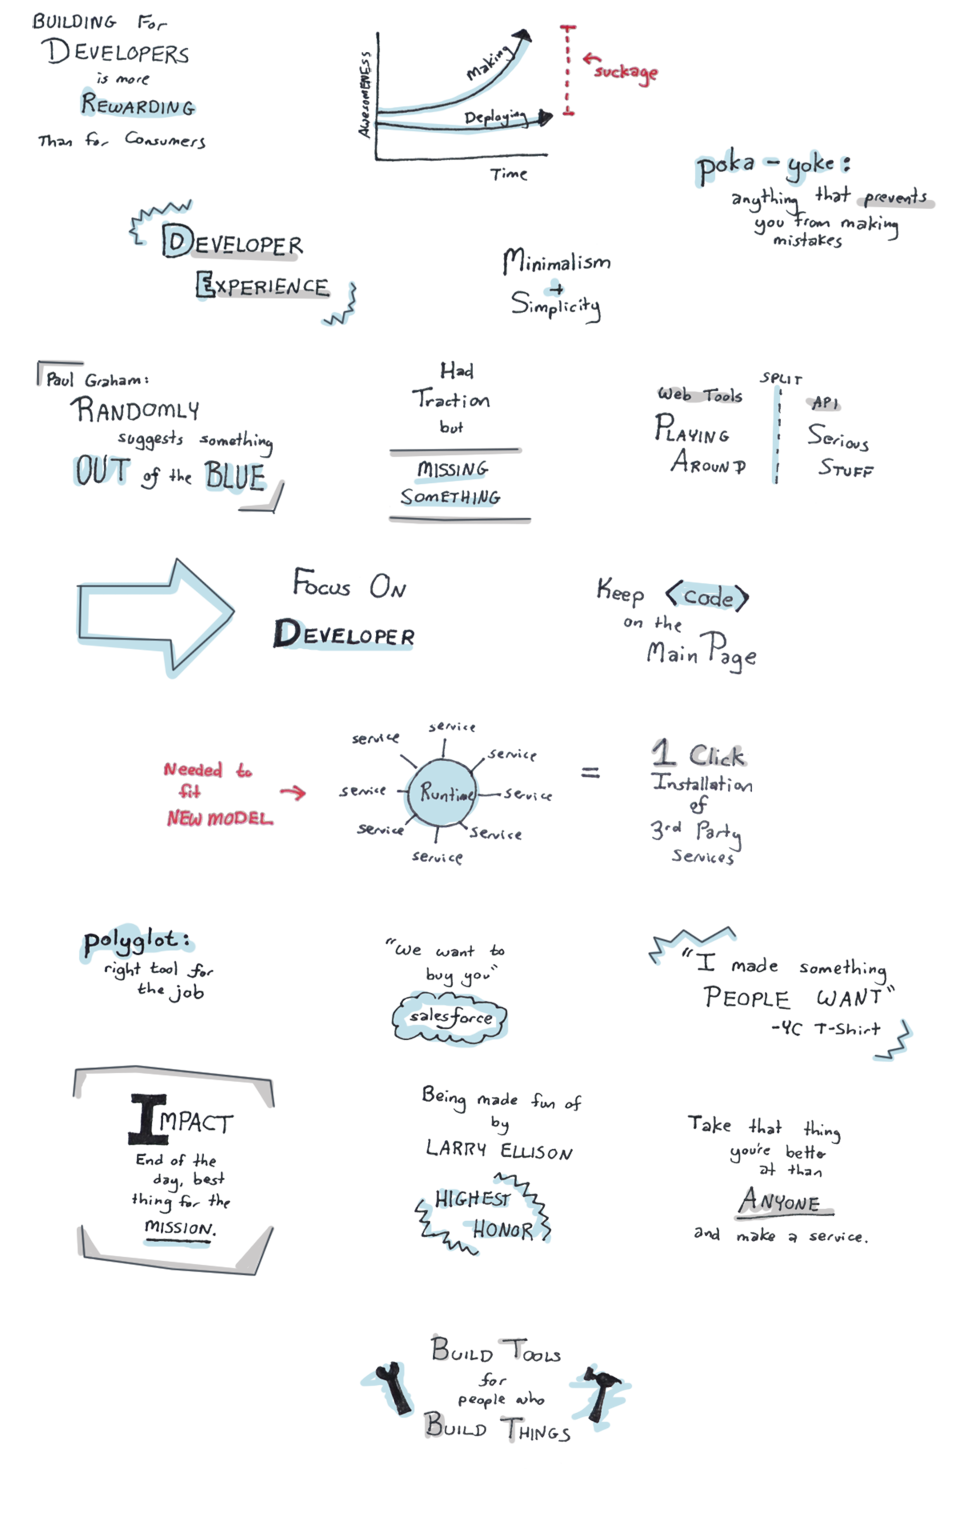 BUILDING For
DEVELOPERS
is more
REWARDING
Than for Consumers
AWESOMENESS
Making
Deploying
Time
suckage
poka-yoke:
anything that prevents
you from making
mistakes
DEVELOPER
EXPERIENCE
Minimalism
+
Simplicity
Paul Graham:
RANDOMLY
suggests something
OUT of the BLUE
Had
Traction
but
MISSING
SOMETHING
SPLIT
Web Tools
PLAYING
AROUND
API
Serious
STUFF
FOCUS ON
DEVELOPER
Keep <code>
on the
Main Page
Needed to
fit
NEW MODEL
service
service
service
service
service
service
service
service
Runtime
=
1 Click
Installation
of
3rd Party
Services
polyglot:
right tool for
the job
"We want to
buy you"
salesforce
"I made something
PEOPLE WANT"
-YC T-Shirt
IMPACT
End of the
day, best
thing for the
MISSION.
Being made fun of
by
LARRY ELLISON
HIGHEST
HONOR
Take that thing
you're better
at than
ANYONE
and make a service.
BUILD TOOLS
for
people who
BUILD THINGS